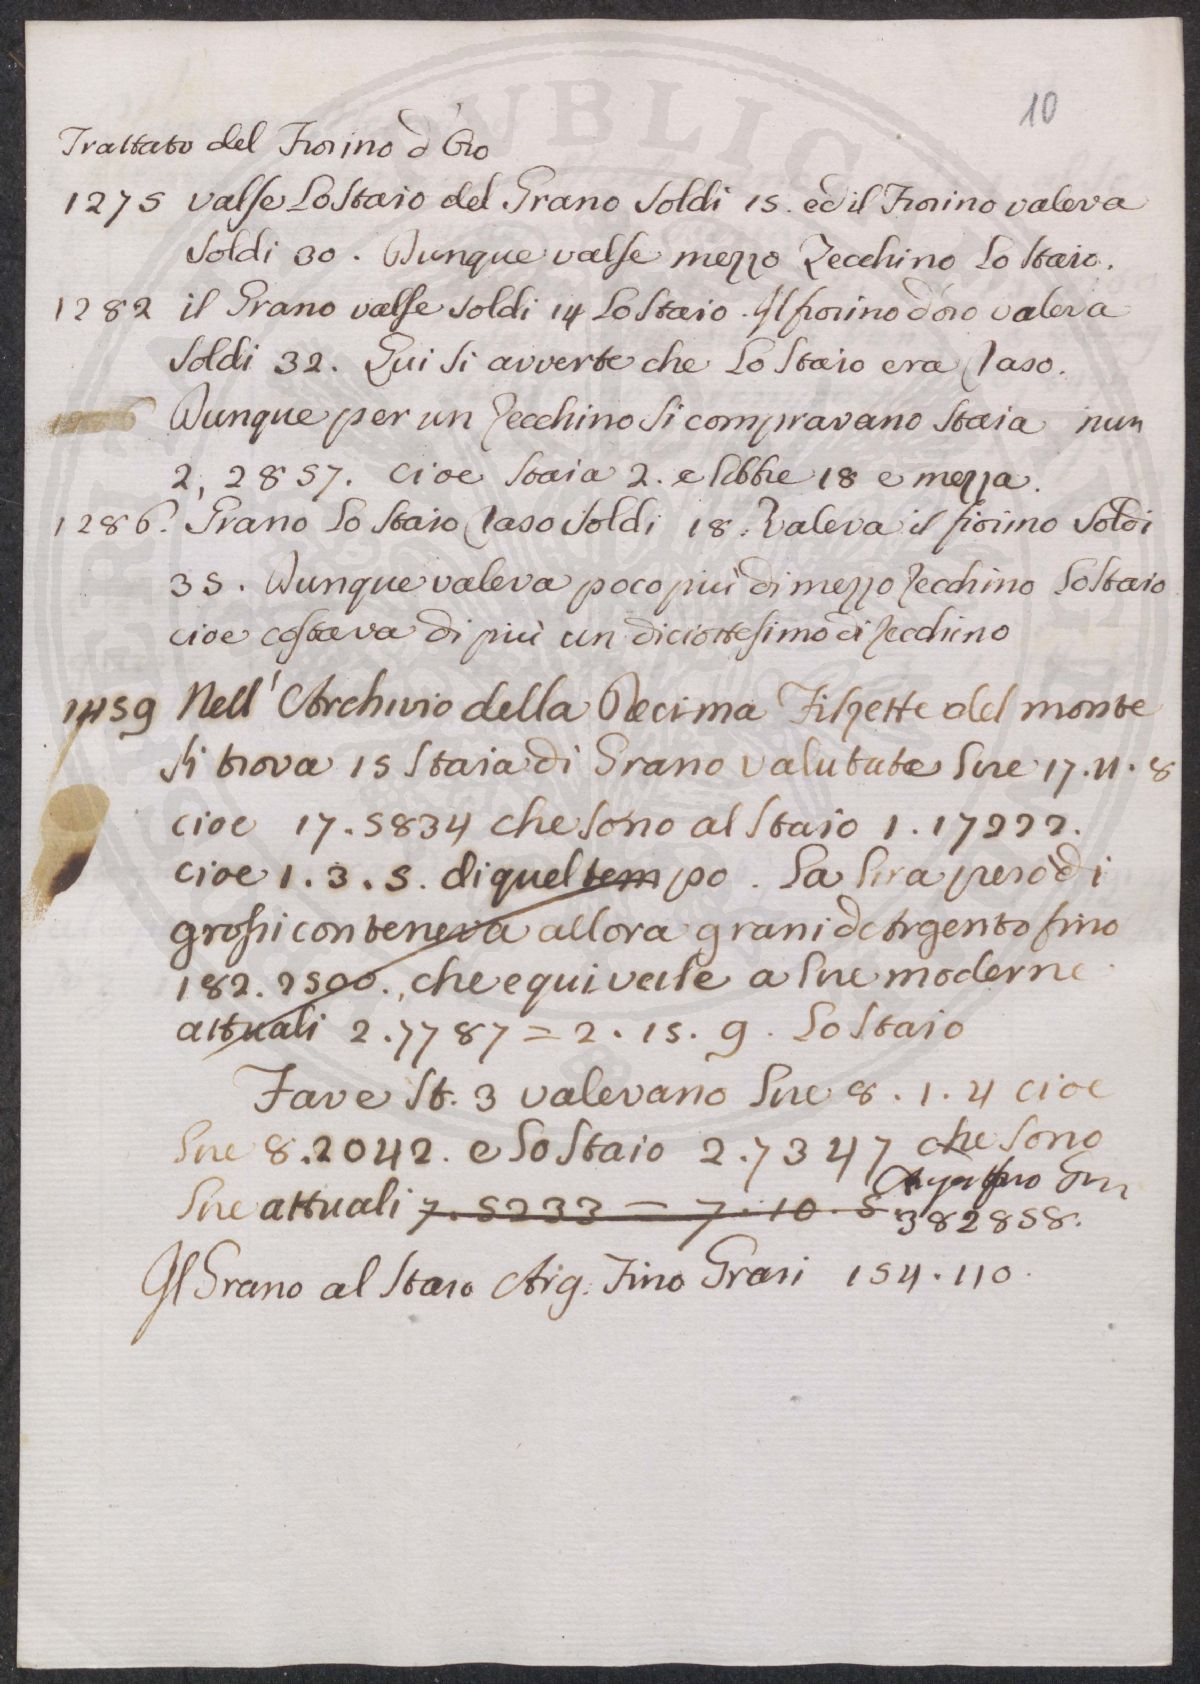 10
Trattato del Fiorino d'Oro
1275 valse Lo Staio del Grano Soldi 15. ed il Fiorino valeva
Soldi 30. Dunque valse mezzo Zecchino Lo Staio.
1282 il Grano valse Soldi 14 Lo Staio. Il fiorino d'oro valeva
Soldi 32. Qui si avverte che Lo Staio era raso.
Dunque per un Zecchino si compravano Staia num
2, 2857. cioe Staia 2. e libbre 18 e mezza.
1286. Grano Lo Staio raso Soldi 18. Valeva il fiorino Soldi
35. Dunque valeva poco più di mezzo Zecchino Lo Staio
cioe costava di più un diciottesimo di Zecchino
1459 Nell'Archivio della Decima Filzette del monte
si trova 15 Staia di Grano valutate Lire 17.11.8
cioe 17.5834 che sono al Staio 1.17222.
cioe 1.3.5. di quel tempo. La Lira però di
grossi conteneva allora grani d'Argento fino
182.2500., che equivale a Lire moderne
attuali 2.7787 = 2.15.9. Lo Staio
Fave St. 3 valevano Lire 8.1.4 cioe
Lire 8.2042. e Lo Staio 2.7347 che sono
Lire attuali 7.5233 = 7.10.5 fino
382858.
Il Grano al Staio Arg. Fino Grani 154.110.